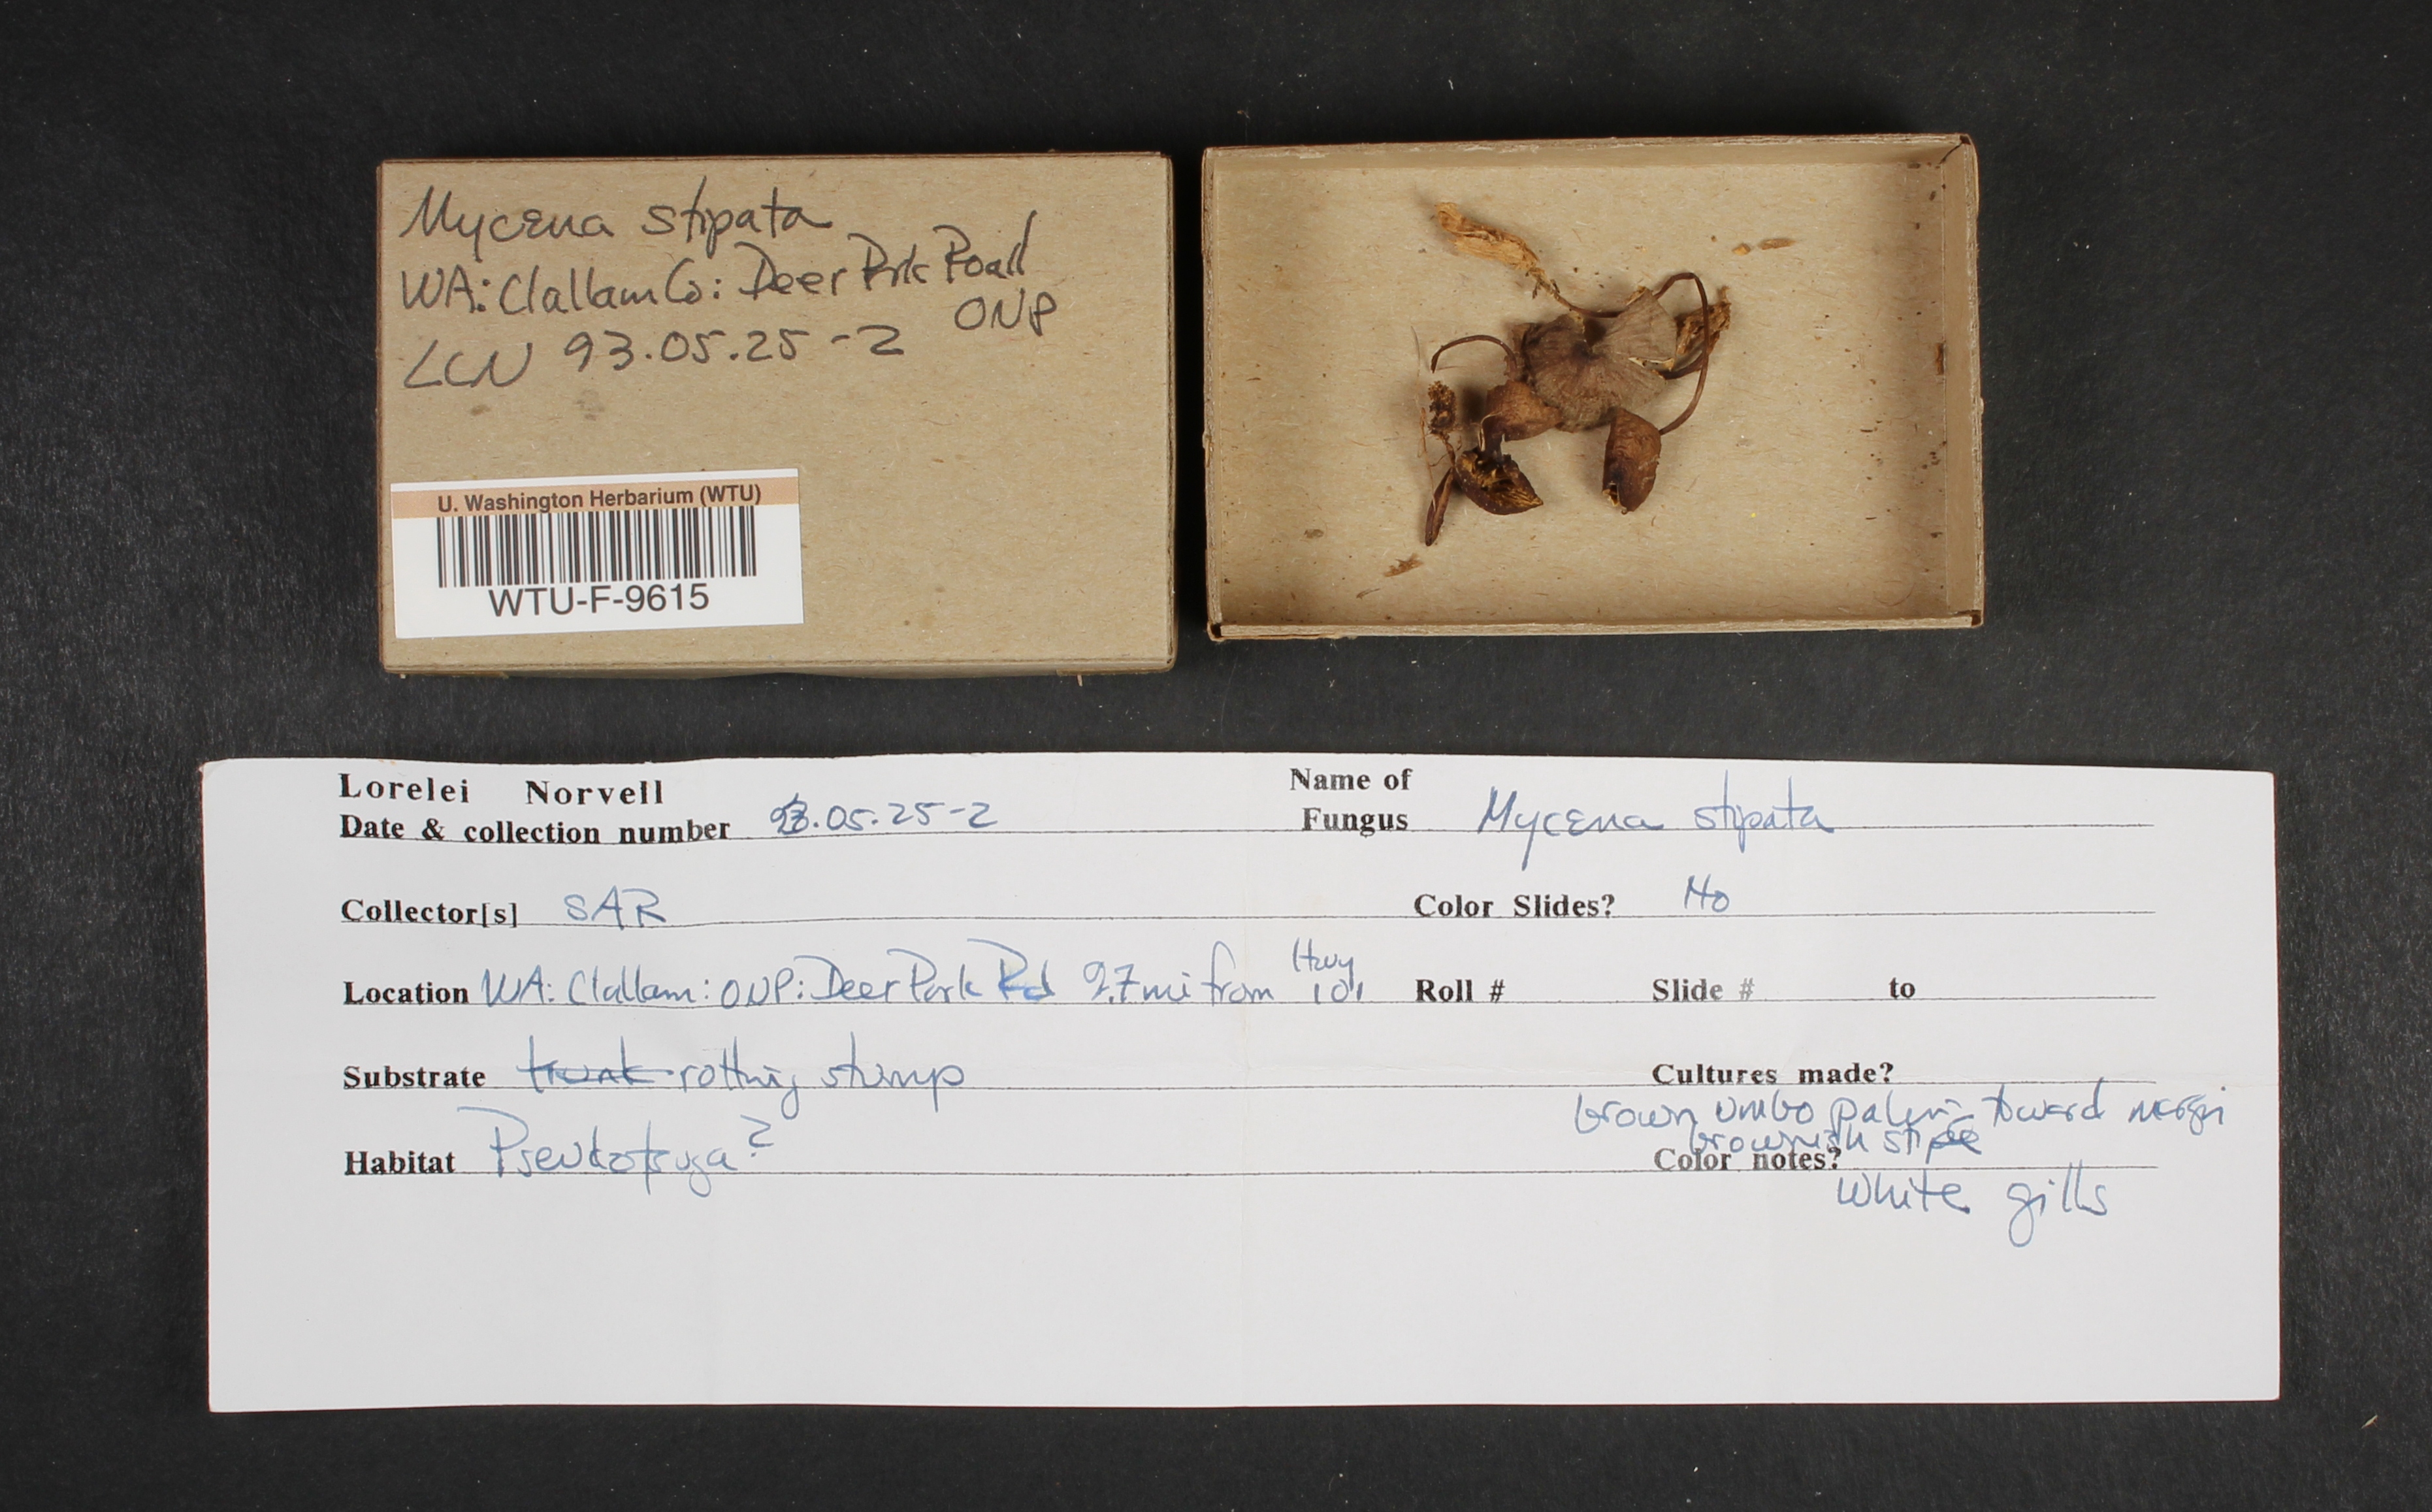 Mycena stipata
WA: Clallam Co: Deer Park Road
ONP
LCN 93.05.25-2
U. Washington Herbarium (WTU)
WTU-F-9615
Lorelei Norvell
Date & collection number 93.05.25-2
Name of
Fungus Mycena stipata
Collector[s] SAR
Color Slides? No
Location WA: Clallam: ONP: Deer Park Rd 9.7 mi from Hwy 101
Roll # Slide # to
Substrate trunk rotting stump
Cultures made?
brown umbo paler toward margin
brownish stipe
Habitat Pseudotsuga?
Color notes?
white gills